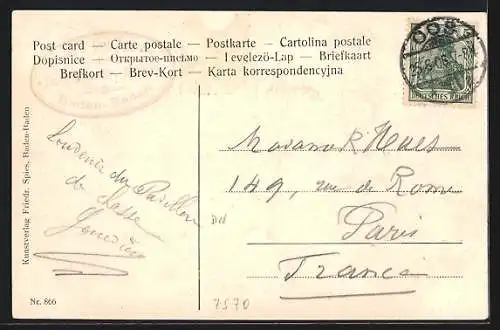 Post card — Carte postale — Postkarte — Cartolina postale
Dopisnice — Открытое-письмо — Levelezö-Lap — Briefkaart
Brefkort — Brev-Kort — Karta korrespondencyjna
OOS
DEUTSCHES REICH
Baden-Baden
Souvenir du Pavillon
de chasse
149, rue de Rome
Paris
France
Kunstverlag Friedr. Spies, Baden-Baden
Nr. 866
7570